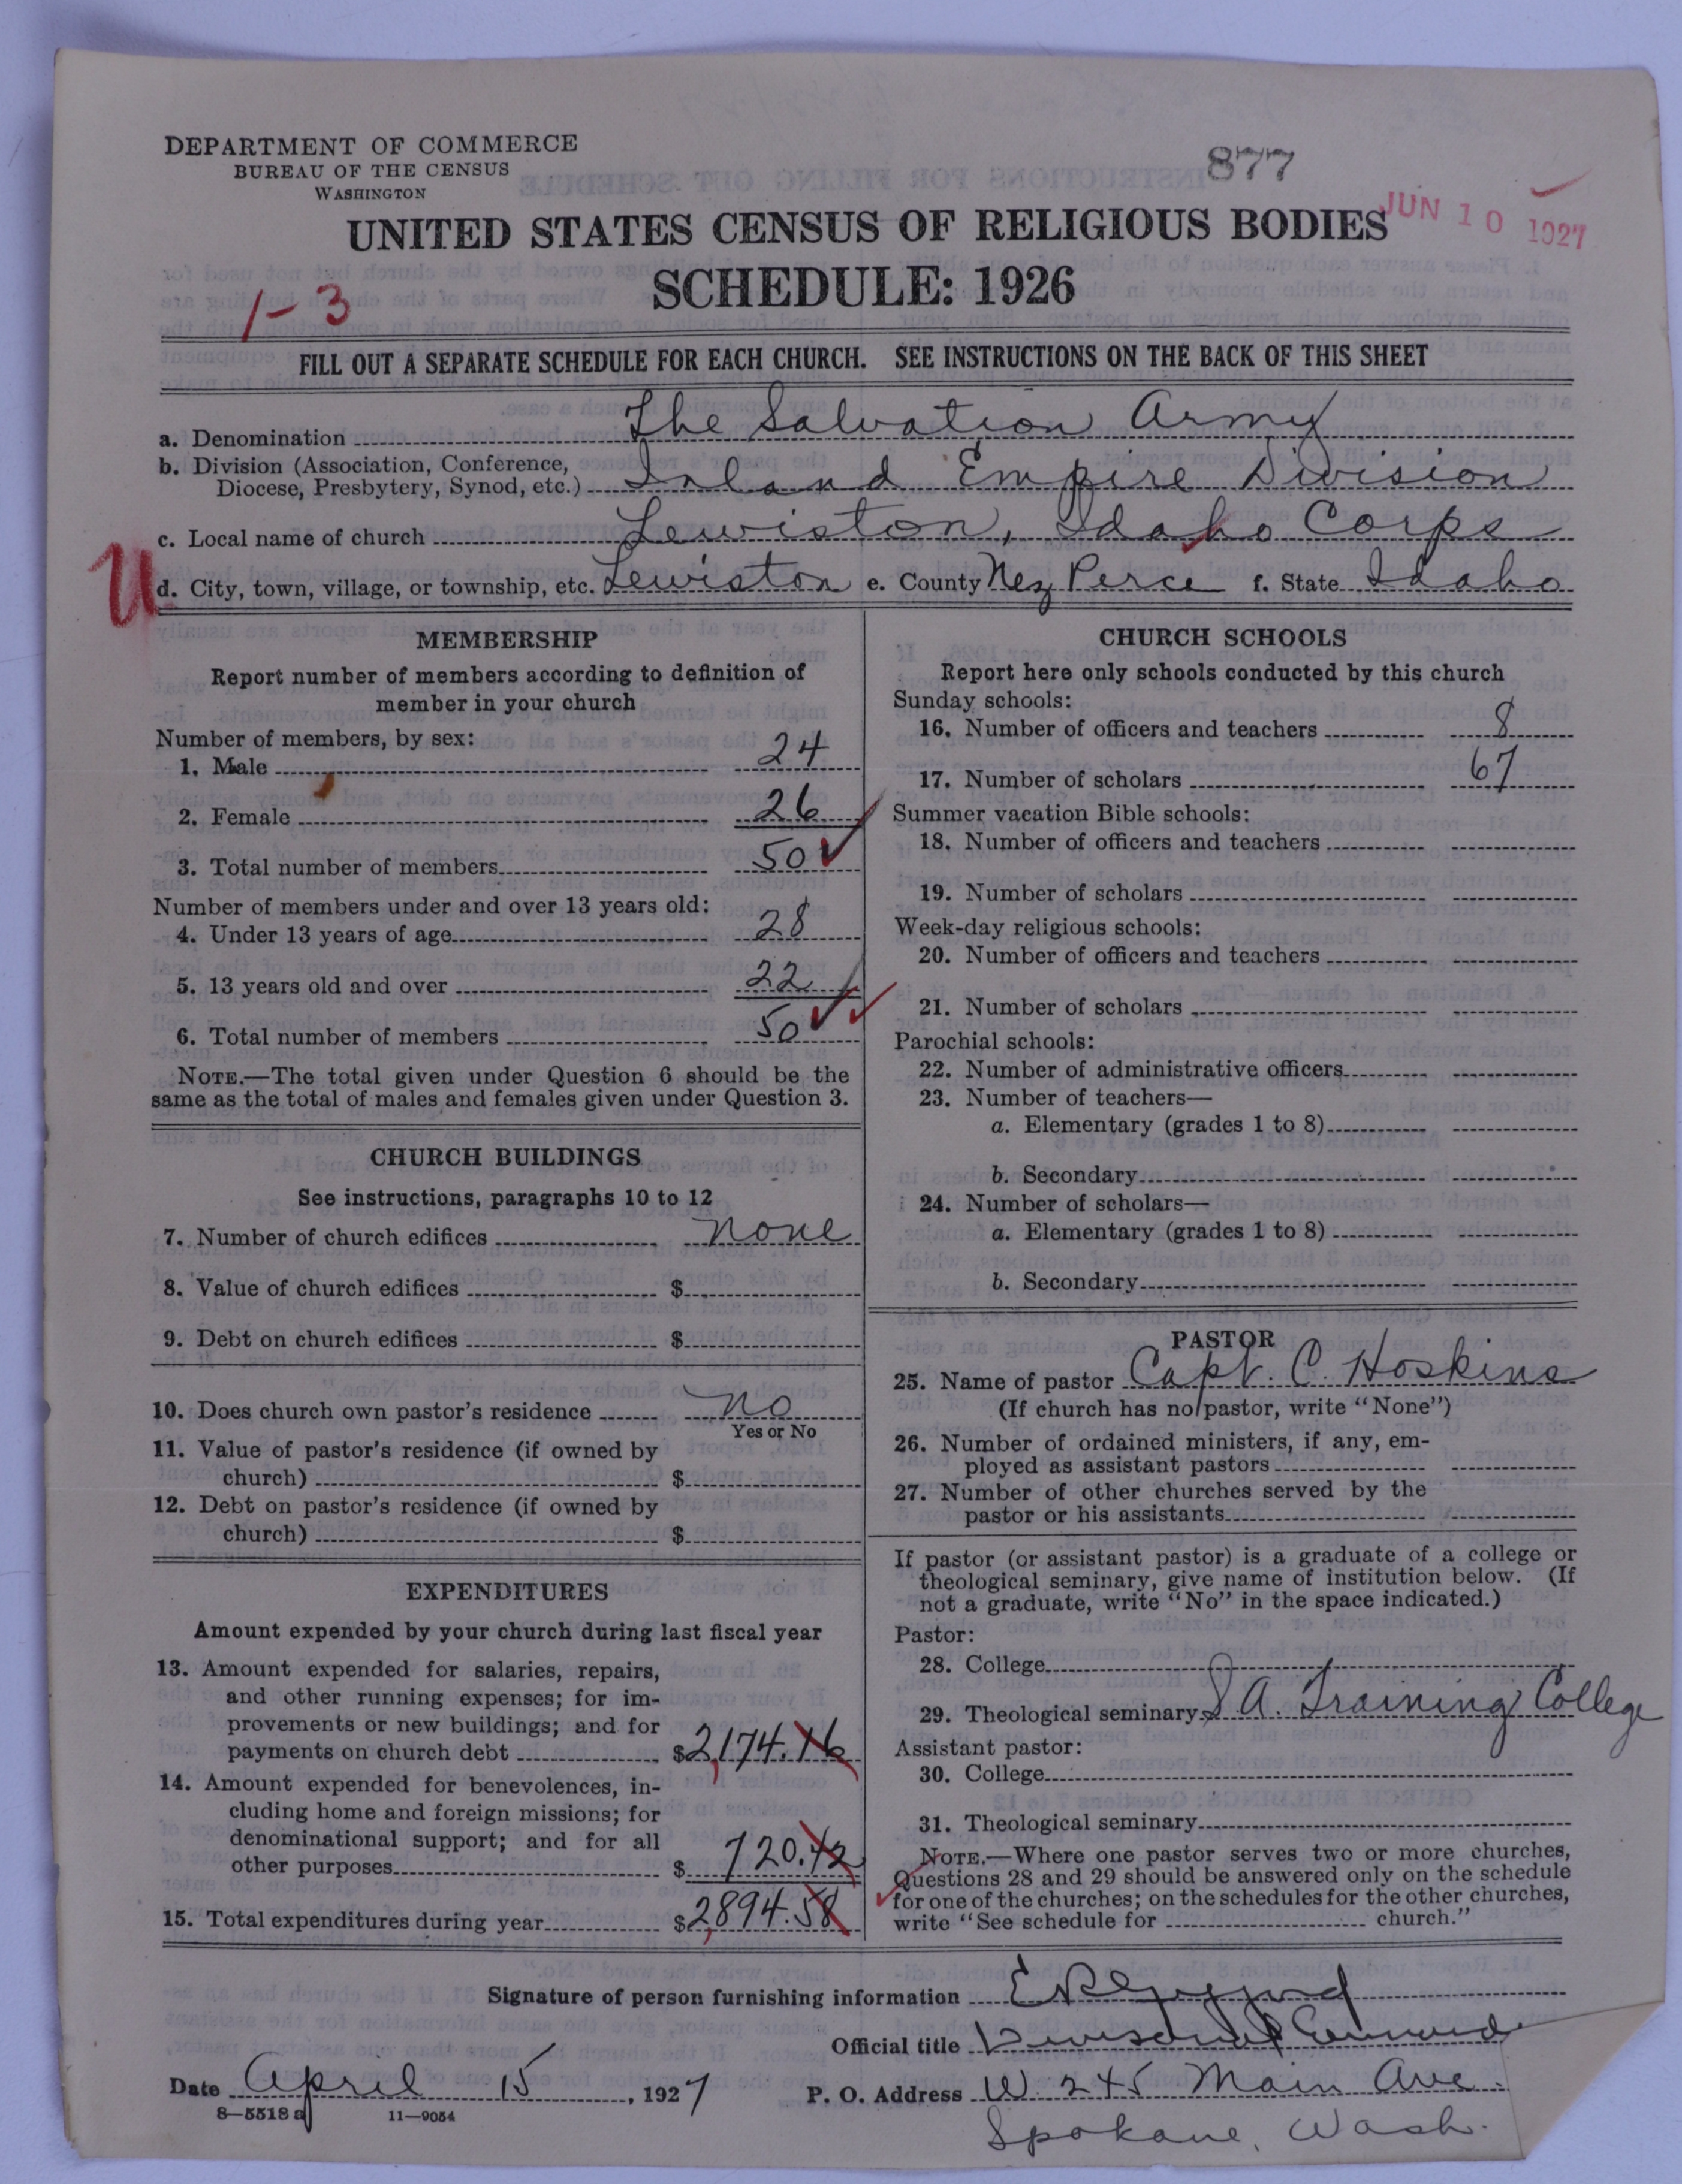 877
DEPARTMENT OF COMMERCE
BUREAU OF THE CENSUS
WASHINGTON
JUN 10 1927
UNITED STATES CENSUS OF RELIGIOUS BODIES
SCHEDULE: 1926
1-3
FILL OUT A SEPARATE SCHEDULE FOR EACH CHURCH. SEE INSTRUCTIONS ON THE BACK OF THIS SHEET
a. Denomination The Salvation Army
b. Division (Association, Conference,
Diocese, Presbytery, Synod, etc.) Inland Empire Division
c. Local name of church Lewiston, Idaho Corps
U
d. City, town, village, or township, etc. Lewiston e. County Nez Perce f. State Idaho
MEMBERSHIP
Report number of members according to definition of
member in your church
Number of members, by sex:
1. Male 24
2. Female 26
3. Total number of members 50
Number of members under and over 13 years old:
4. Under 13 years of age 28
5. 13 years old and over 22
6. Total number of members 50
NOTE.—The total given under Question 6 should be the
same as the total of males and females given under Question 3.
CHURCH BUILDINGS
See instructions, paragraphs 10 to 12
7. Number of church edifices none
8. Value of church edifices $
9. Debt on church edifices $
10. Does church own pastor's residence no
Yes or No
11. Value of pastor's residence (if owned by
church) $
12. Debt on pastor's residence (if owned by
church) $
EXPENDITURES
Amount expended by your church during last fiscal year
13. Amount expended for salaries, repairs,
and other running expenses; for im-
provements or new buildings; and for
payments on church debt $2,174.16
14. Amount expended for benevolences, in-
cluding home and foreign missions; for
denominational support; and for all
other purposes $ 720.42
15. Total expenditures during year $2,894.58
CHURCH SCHOOLS
Report here only schools conducted by this church
Sunday schools:
16. Number of officers and teachers 8
17. Number of scholars 67
Summer vacation Bible schools:
18. Number of officers and teachers
19. Number of scholars
Week-day religious schools:
20. Number of officers and teachers
21. Number of scholars
Parochial schools:
22. Number of administrative officers
23. Number of teachers—
a. Elementary (grades 1 to 8)
b. Secondary
24. Number of scholars—
a. Elementary (grades 1 to 8)
b. Secondary
PASTOR
25. Name of pastor Capt. C. Hoskins
(If church has no pastor, write "None")
26. Number of ordained ministers, if any, em-
ployed as assistant pastors
27. Number of other churches served by the
pastor or his assistants
If pastor (or assistant pastor) is a graduate of a college or
theological seminary, give name of institution below. (If
not a graduate, write "No" in the space indicated.)
Pastor:
28. College
29. Theological seminary S A. Training College
Assistant pastor:
30. College
31. Theological seminary
NOTE.—Where one pastor serves two or more churches,
Questions 28 and 29 should be answered only on the schedule
for one of the churches; on the schedules for the other churches,
write "See schedule for church."
Signature of person furnishing information
Official title Divisional
Date April 15, 1927 P. O. Address W. 245 Main Ave.
8—5518 a 11—9054
Spokane, Wash.